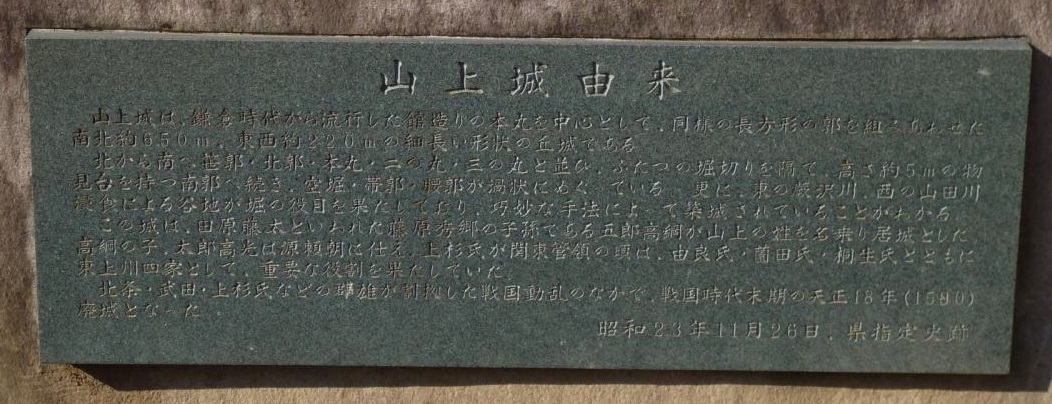 山上城由来
山上城は、鎌倉時代から流行した館造りの本丸を中心として、同様の長方形の郭を組みあわせた
南北約650m、東西約220mの細長い形状の丘城である
北から南へ笹郭・北郭・本丸・二の丸・三の丸と並び、ふたつの堀切りを隔て、高さ約5mの物
見台を持つ南郭へ続き、空堀・帯郭・腰郭が渦状にめぐっている 更に、東の蕨沢川、西の山田川
による谷地が堀の役目を果たしており、巧妙な手法によって築城されていることがわかる
この城は、田原藤太といわれた藤原秀郷の子孫である五郎高綱が山上の姓を名乗り居城とした
高綱の子、太郎高光は源頼朝に仕え、上杉氏が関東管領の頃は、由良氏・薗田氏・桐生氏とともに
東上州四家として、重要な役割を果たしていた。
北条・武田・上杉氏などの群雄が割拠した戦国動乱のなかで、戦国時代末期の天正18年(1590)
廃城となった
昭和23年11月26日、県指定史跡